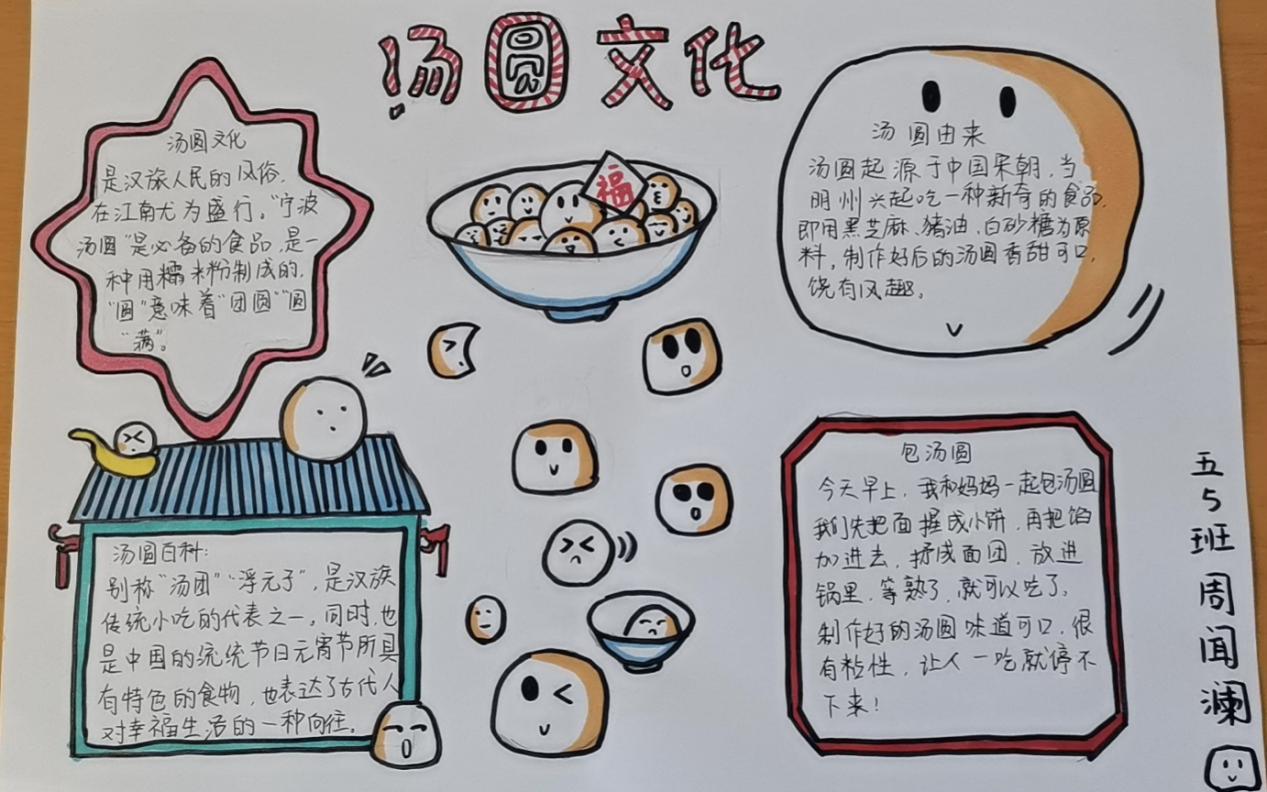 汤圆文化
福
汤圆文化
是汉族人民的风俗.
在江南尤为盛行。"宁波
汤圆"是必备的食品.是一
种用糯米粉制成的.
"圆"意味着"团圆""圆
"满"。
汤圆由来
汤圆起源于中国宋朝.当
明州兴起吃一种新奇的食品.
即用黑芝麻、猪油、白砂糖为原
料,制作好后的汤圆香甜可口,
饶有风趣。
汤圆百科:
别称"汤团""浮元子",是汉族
传统小吃的代表之一。同时,也
是中国的统节日元宵节所具
有特色的食物,也表达了古代人
对幸福生活的一种向往。
包汤圆
今天早上,我和妈妈一起包汤圆
我们先把面握成小饼,再把馅
加进去,搓成面团,放进
锅里,等熟了,就可以吃了。
制作好的汤圆味道可口,很
有粘性,让人一吃就停不
下来!
五5班周闻澜